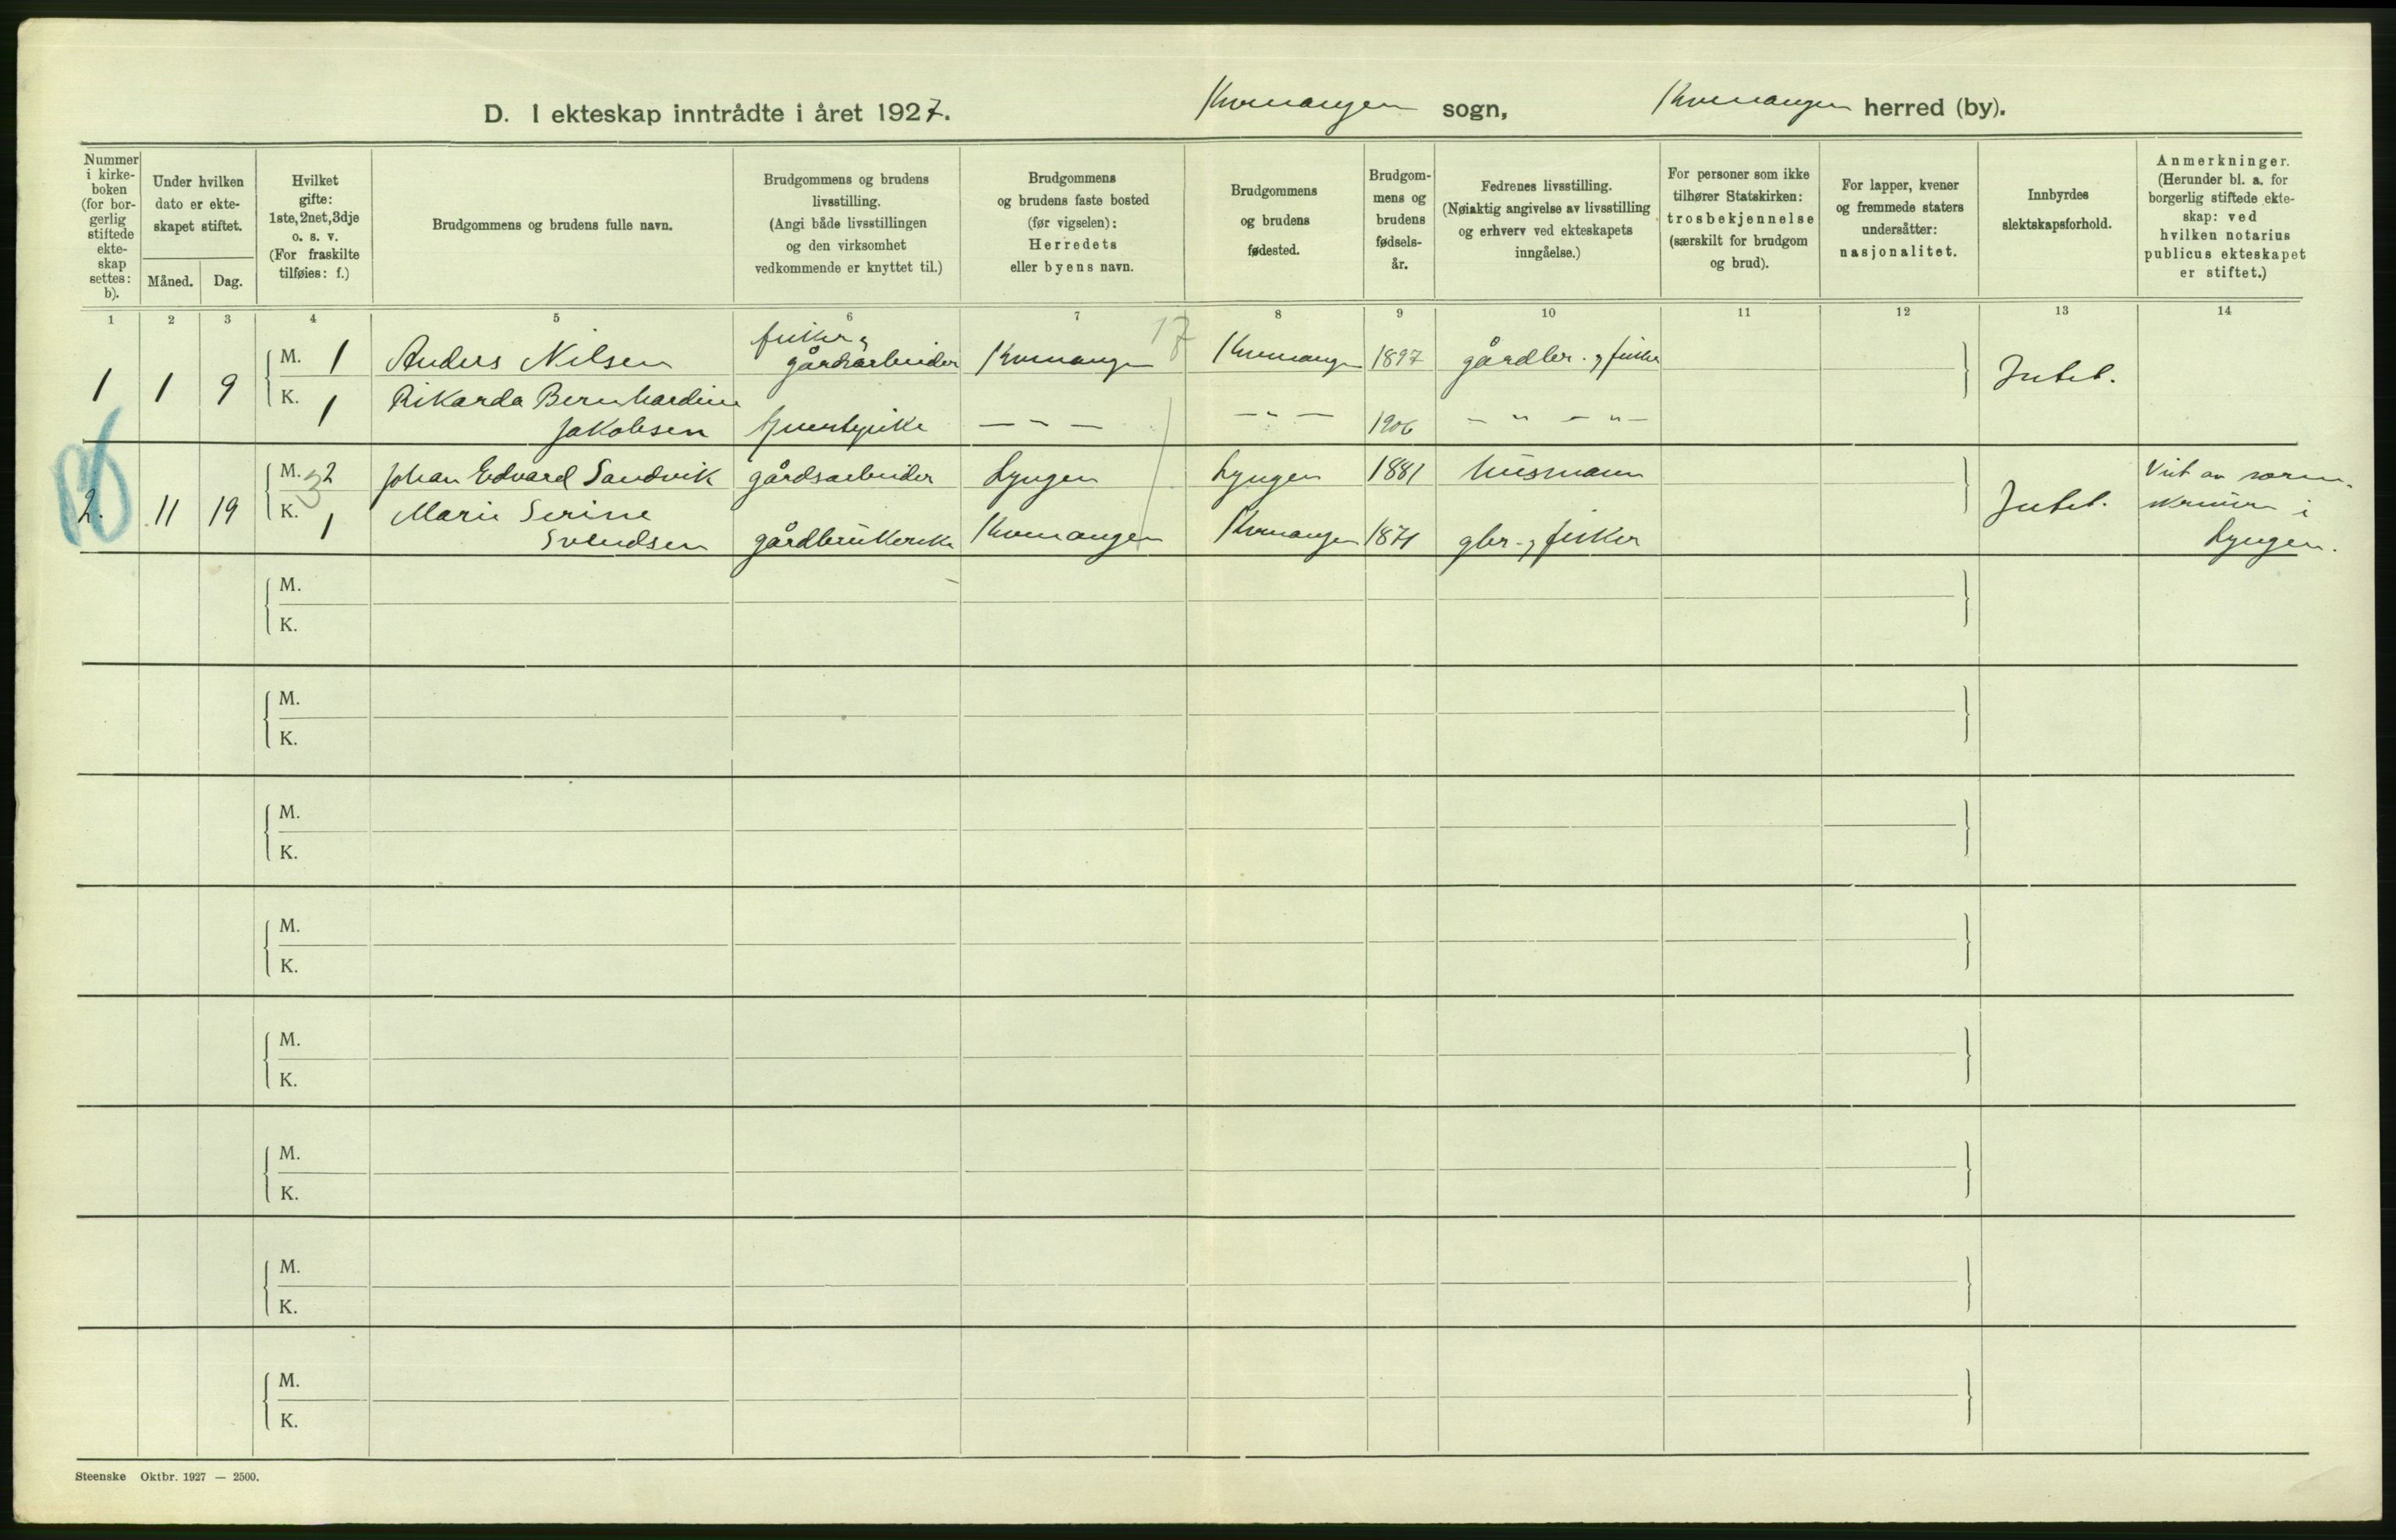 D. I ekteskap inntrådte i året 1927. Kvenangen sogn, Kvenangen herred (by).
Nummer i kirkeboken (for borgerlig stiftede ekteskap settes: b).
Under hvilken dato er ekteskapet stiftet.
Måned. Dag.
Hvilket gifte: 1ste, 2net, 3dje o. s. v. (For fraskilte tilføies: f.)
Brudgommens og brudens fulle navn.
Brudgommens og brudens livsstilling. (Angi både livsstillingen og den virksomhet vedkommende er knyttet til.)
Brudgommens og brudens faste bosted (før vigselen): Herredets eller byens navn.
Brudgommens og brudens fødested.
Brudgommens og brudens fødselsår.
Fedrenes livsstilling. (Nøiaktig angivelse av livsstilling og erhverv ved ekteskapets inngåelse.)
For personer som ikke tilhører Statskirken: trosbekjennelse (særskilt for brudgom og brud).
For lapper, kvener og fremmede staters undersåtter: nasjonalitet.
Innbyrdes slektskapsforhold.
Anmerkninger. (Herunder bl. a. for borgerlig stiftede ekteskap: ved hvilken notarius publicus ekteskapet er stiftet.)
1 2 3 4 5 6 7 8 9 10 11 12 13 14
17
fisker og
1 1 9 M. 1 Anders Nilsen gårdsarbeider Kvenangen Kvenangen 1897 gårdbr. og fisker Intet.
K. 1 Rikarda Bernhardine
Jakobsen tjenestepike — - — — " — 1906 — " — " —
M. 2 Johan Edvard Sandvik gårdsarbeider Lyngen Lyngen 1881 husmann Viet av soren-
2. 11 19 K. 1 Marie Serine Intet. skriveren i
Svendsen gårdbrukerske Kvenangen Kvenangen 1871 gbr. og fisker Lyngen.
M.
K.
M.
K.
M.
K.
M.
K.
M.
K.
M.
K.
M.
K.
M.
K.
Steenske Oktbr. 1927 — 2500.